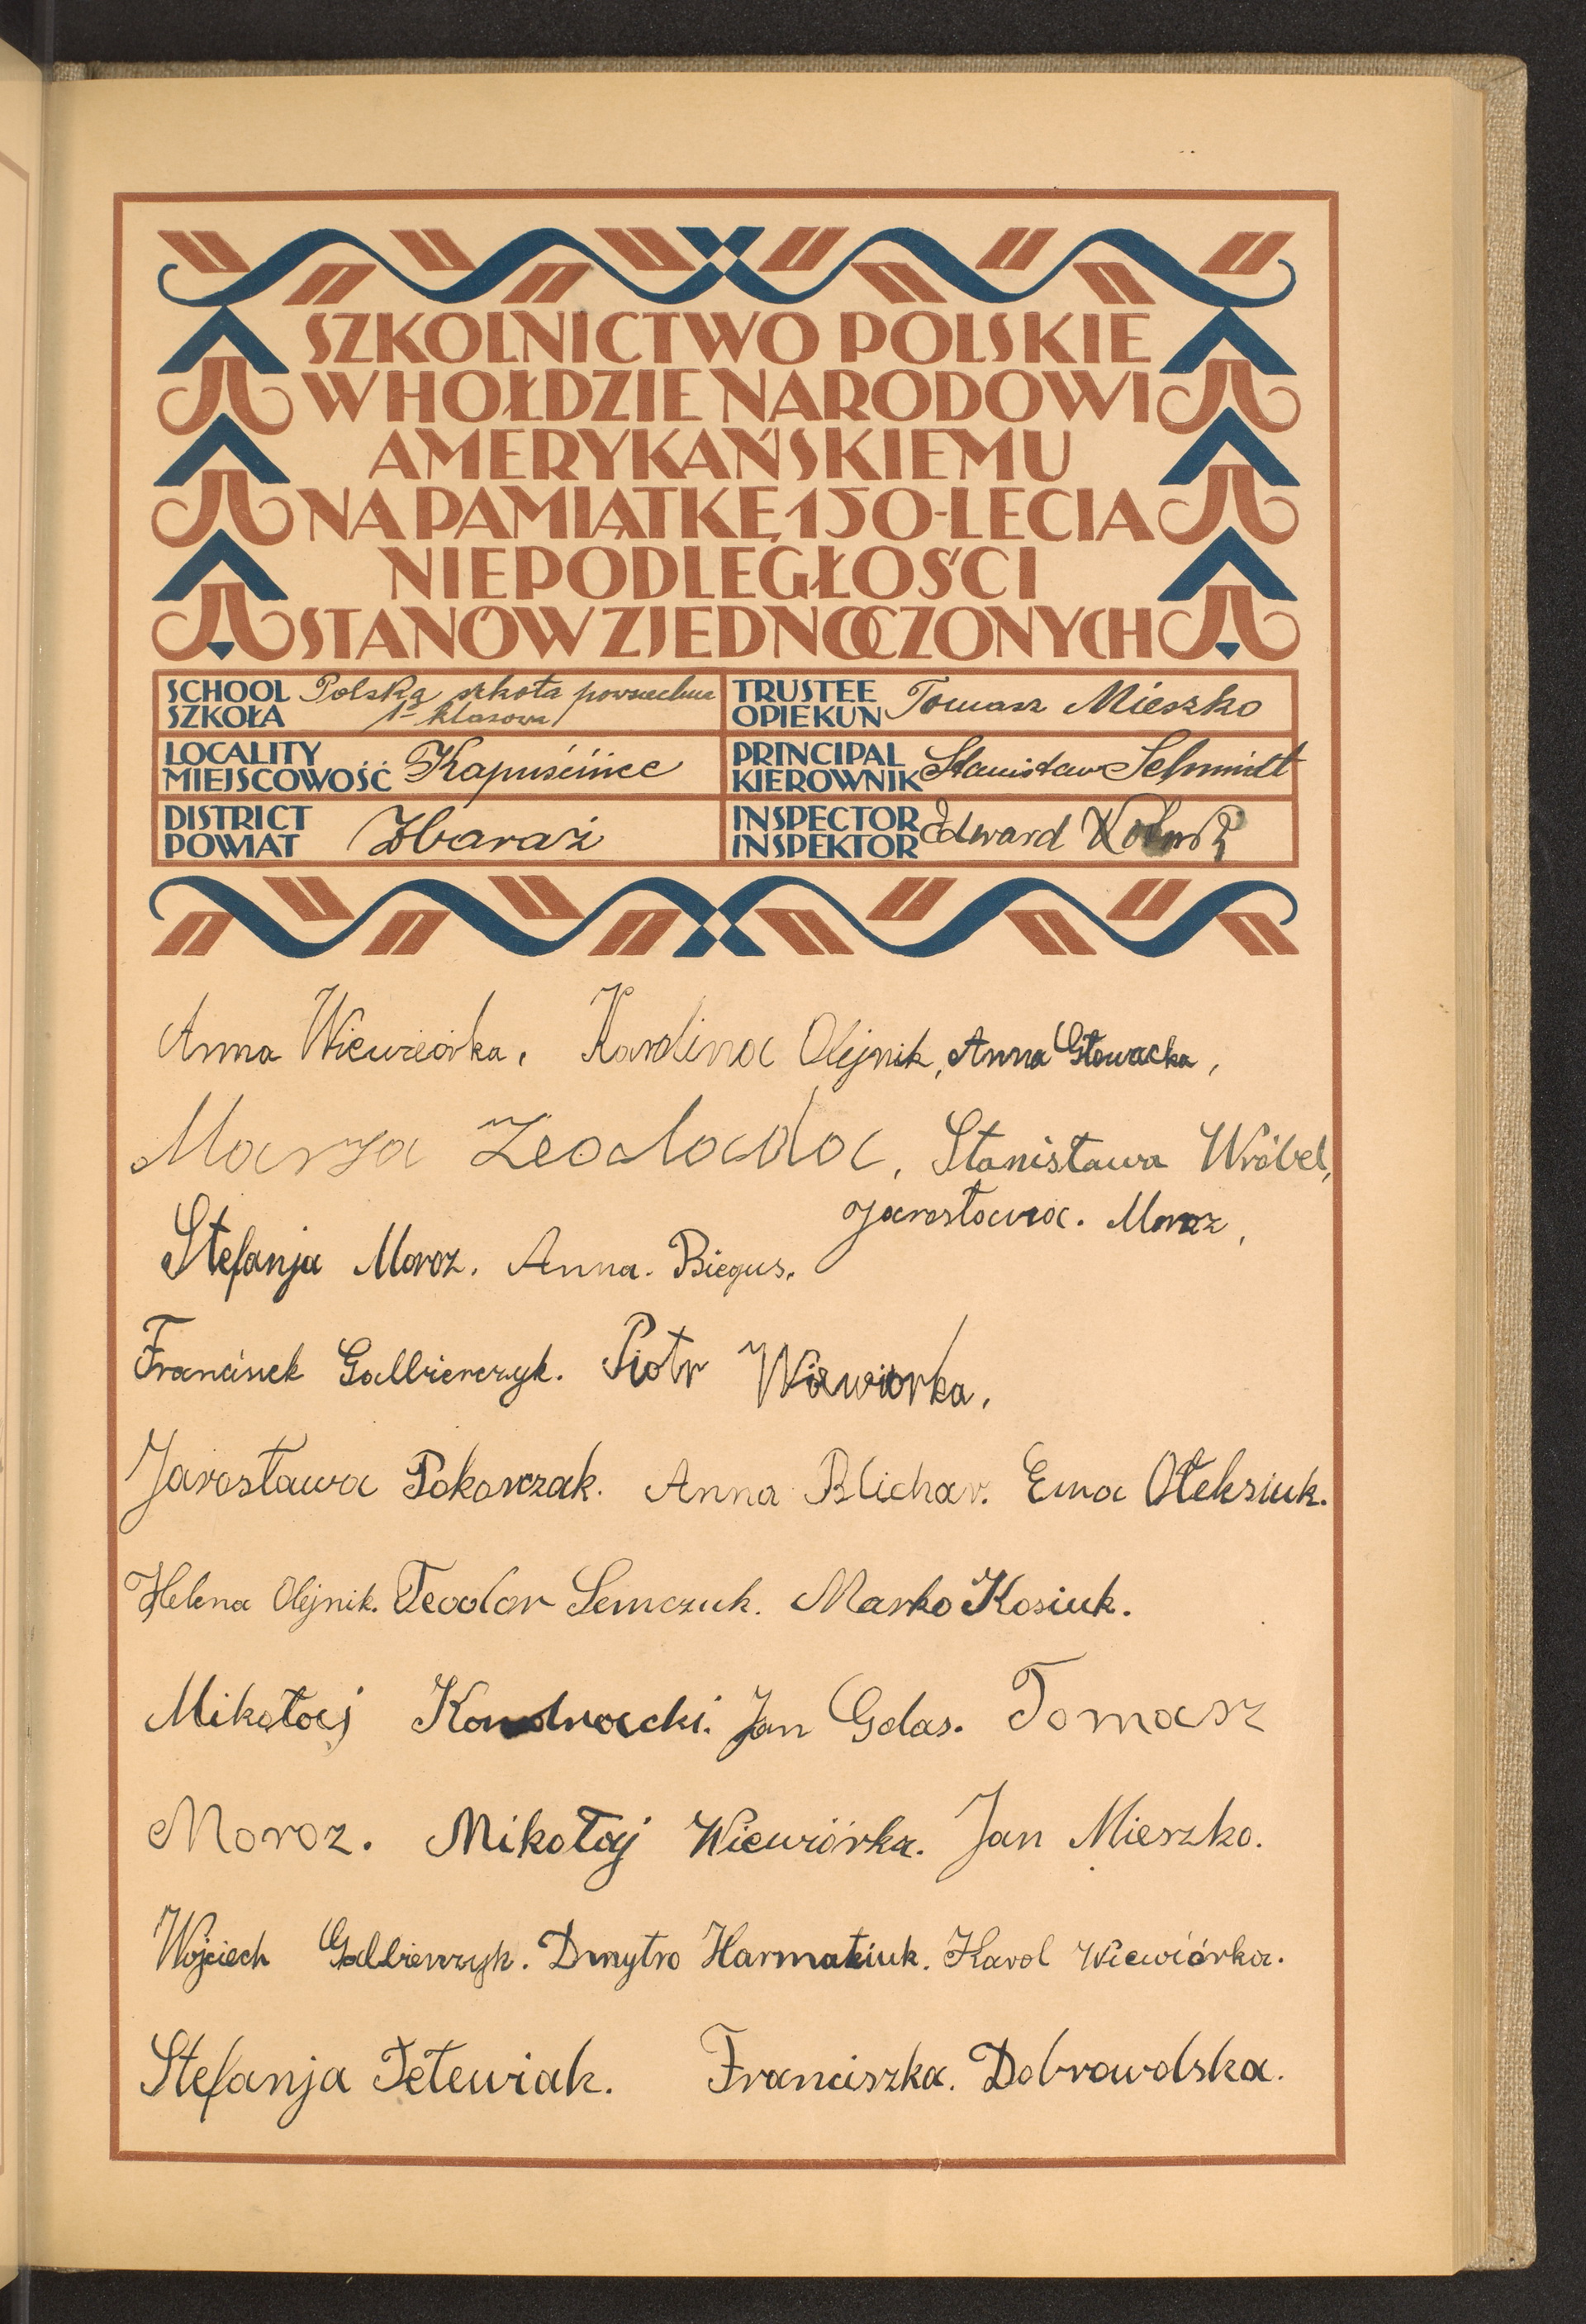 SZKOLNICTWO POLSKIE
W HOŁDZIE NARODOWI
AMERYKAŃSKIEMU
NA PAMIĄTKĘ 150-LECIA
NIEPODLEGŁOŚCI
STANÓW ZJEDNOCZONYCH
SCHOOL SZKOŁA Polska szkoła powszechna 1-klasowa
TRUSTEE OPIEKUN Tomasz Mieszko
LOCALITY MIEJSCOWOŚĆ Kapuścińce
PRINCIPAL KIEROWNIK Stanisław Schmidt
DISTRICT POWIAT Zbaraż
INSPECTOR INSPEKTOR Edward
Anna Wiewiórka, Karolina Olejnik, Anna Głowacka,
Stanisława Wróbel,
Jarosława. Moroz,
Stefanja Moroz. Anna. Biegus.
Franciszek Galbierczyk. Piotr Wiewiorka.
Jarosława Pokorczak. Anna Blichar. Ewa Ołeksiuk.
Helena Olejnik. Teodor Semczuk. Marko Kosiuk.
Mikołaj Kondracki. Jan Golas. Tomasz
Moroz. Mikołaj Wiewiórka. Jan Mieszko.
Wojciech Galbierczyk. Dmytro Harmatiuk. Karol Wiewiórka.
Stefanja Tetewiak. Franciszka. Dobrowolska.